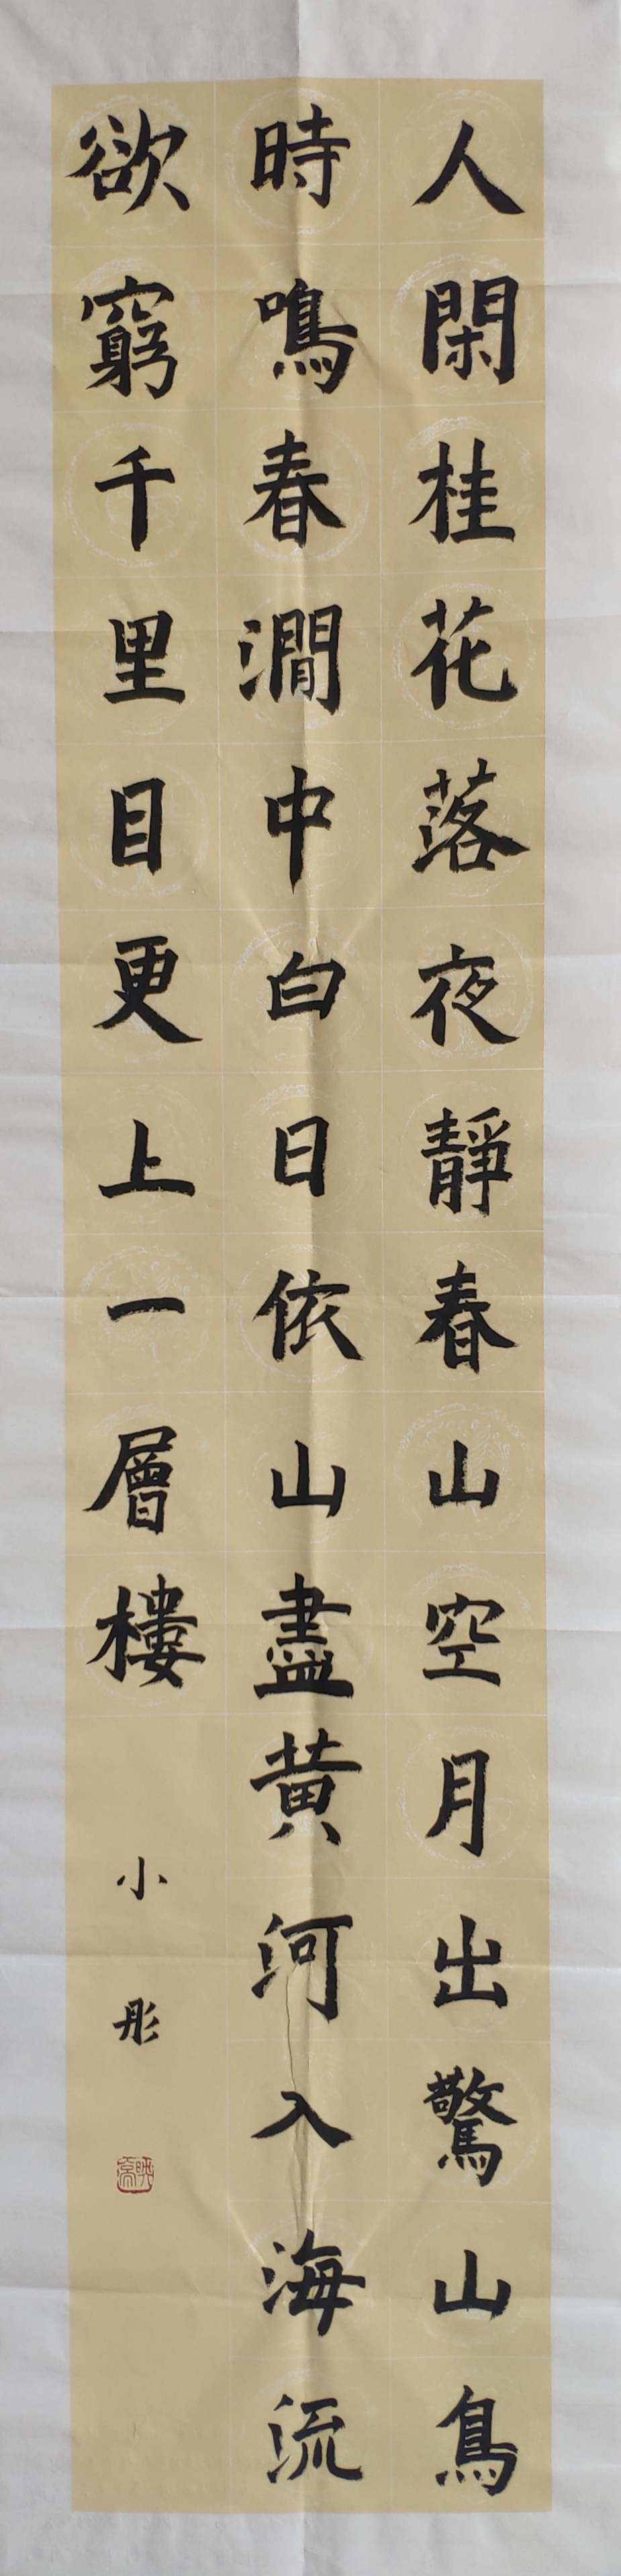 人閑桂花落夜靜春山空月出驚山鳥
時鳴春澗中白日依山盡黃河入海流
欲窮千里目更上一層樓
小彤